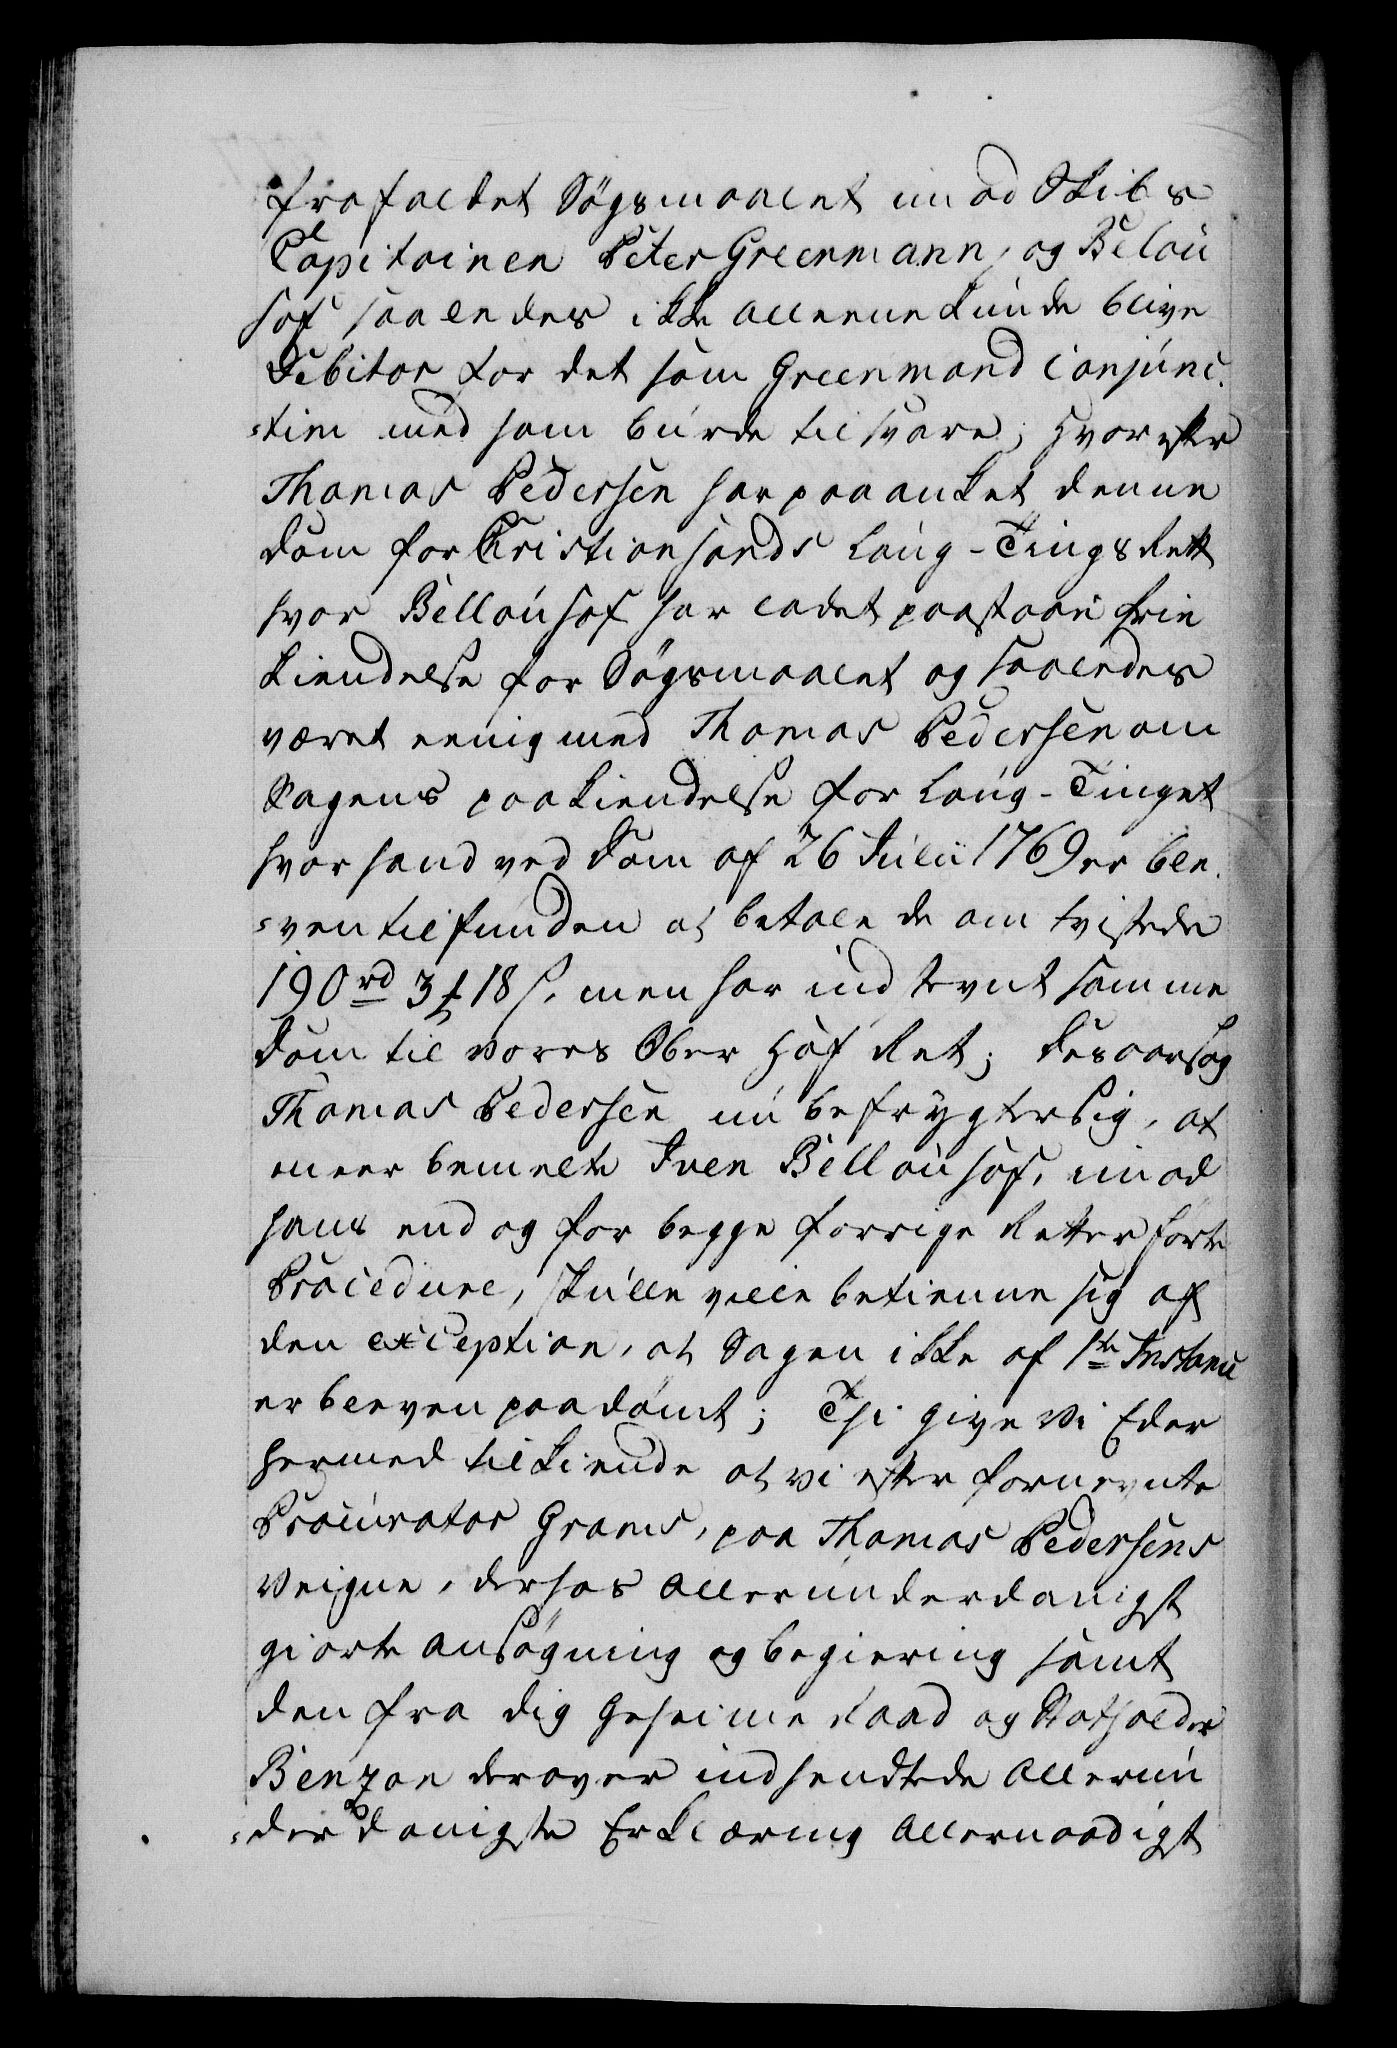 frafaldet Søgsmaalet imod Skibs
Capitainen Peter Greenmann, og Belou
hof saaledes ikke alleene kunde blive
Debitor for det som Greenmand conjunc-
=tim med ham burde tilsvare; hvorefter
Thomas Pedersen har paaanket denne
Dom for Christiansands Laug-Tings Rett
hvor Bellouhof har ladet paastaae frie
kiendelse for Søgsmaalet og saaledes
været eenig med Thomas Pedersen om
Sagens paakiendelse for Laug-Tinget
hvor hand ved Dom af 26 Julii 1769 er ble-
=ven tilfunden at betale de omtvistede
190 rd 3 ₰ 18 s, men har indstevnt samme
Dom til vores Ober Hof Ret; Desaarsag
Thomas Pedersen nu befrygter sig, at
meerbemelte Iven Bellouhof, imod
hans end og for begge forrige Retter førte
Procedure, skulle ville betienne sig af
den exception, at Sagen ikke af 1te Instance
er bleven paadømt; Thi give Vi Eder
hermed tilkiende at vi efter fornevnte
Procurator Grams, paa Thomas Pedersens
Veigne, derhos allerunderdanigst
giorte Ansøgning og begiering samt
den fra dig Geheime Raad og Statholder
Benzon derover indsendtede Allerun
=derdanigste Erklæring Allernaadigst